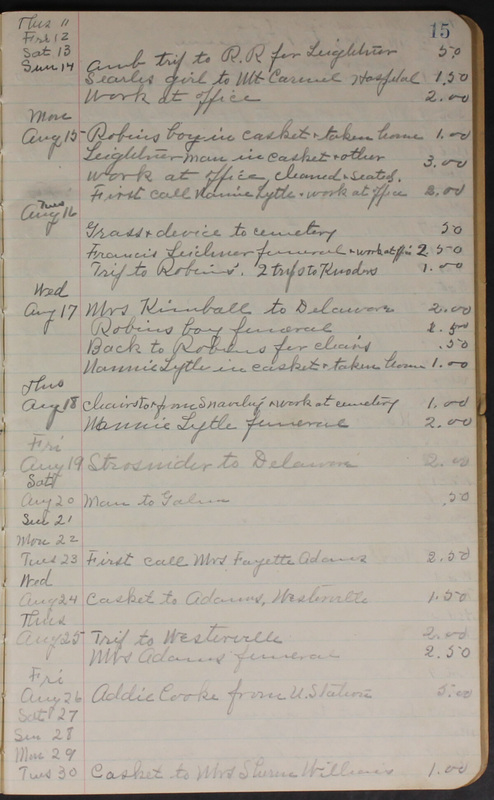 15
Thus 11
Fri 12
Sat 13
Sun 14 amb trip to R.R for Leightner 50
Searles girl to Mt Carmel Hospital 1.50
Work at office 2.00
Mon
Aug 15 Robins boy in casket + taken home 1.00
Leightner man in casket + other
work at office, cleaned + seats. 3.00
First call Nannie Lytle + work at office 2.00
Tues
Aug 16
Grass + device to cemetery 50
Francis Leichner funeral + work at office 2 50
Trip to Robins'. 2 trips to Knoders 1.00
Wed
Aug 17 Mrs Kimball to Delaware 2.00
Robins boy funeral 2.50
Back to Robins for chairs .50
Nannie Lytle in casket + taken home 1.00
Thus
Aug 18 chairs to + from Snavely + work at cemetery 1.00
Nannie Lytle funeral 2.00
Fri
Aug 19 Strosnider to Delaware 2.00
Sat
Aug 20 Man to Galena .50
Sun 21
Mon 22
Tues 23 First call Mrs Fayette Adams 2.50
Wed
Aug 24 Casket to Adams, Westerville 1.50
Thus
Aug 25 Trip to Westerville 2.00
Mrs Adams funeral 2.50
Fri
Aug 26 Addie Cooke from U. Station 5.00
Sat 27
Sun 28
Mon 29
Tues 30 Casket to Mrs Williams 1.00